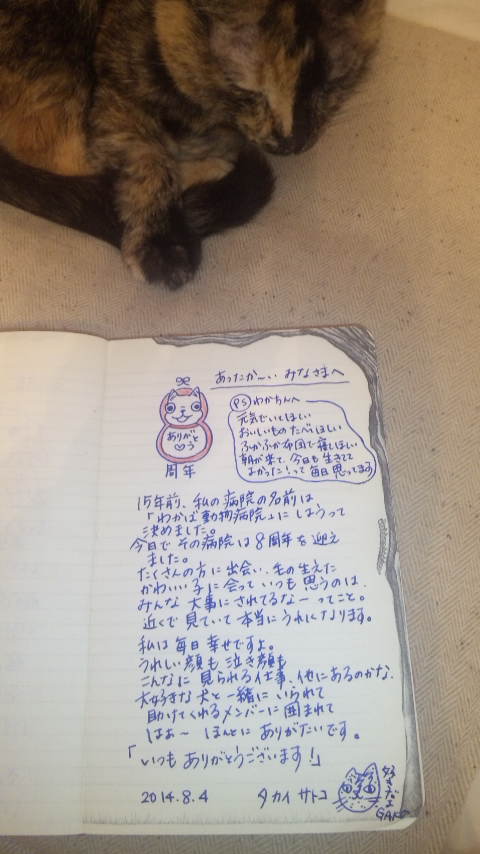 あったか〜い みなさまへ
ありがと
う
周年
PS わかちんへ
元気でいてほしい
おいしいもの たべてほしい
ふかふか布団で寝てほしい
朝が来て、今日も生きてて
よかった!って 毎日 思ってます
15年前、私の病院の名前は
「わかば動物病院」にしようって
決めました。
今日で その病院は 8周年を 迎え
ました。
たくさんの方に出会い、毛の生えた
かわいい子に会って いつも 思うのは、
みんな 大事にされてるなーってこと。
近くで 見ていて 本当に うれしくなります。
私は 毎日 幸せですよ。
うれしい顔も 泣き顔も
こんなに 見られる仕事、他にあるのかな、
大好きな 犬と 一緒に いられて
助けてくれるメンバーに 囲まれて
はぁ〜 ほんとに ありがたいです。
「いつも ありがとうございます!」
2014.8.4 タカイ サトコ
GAKO